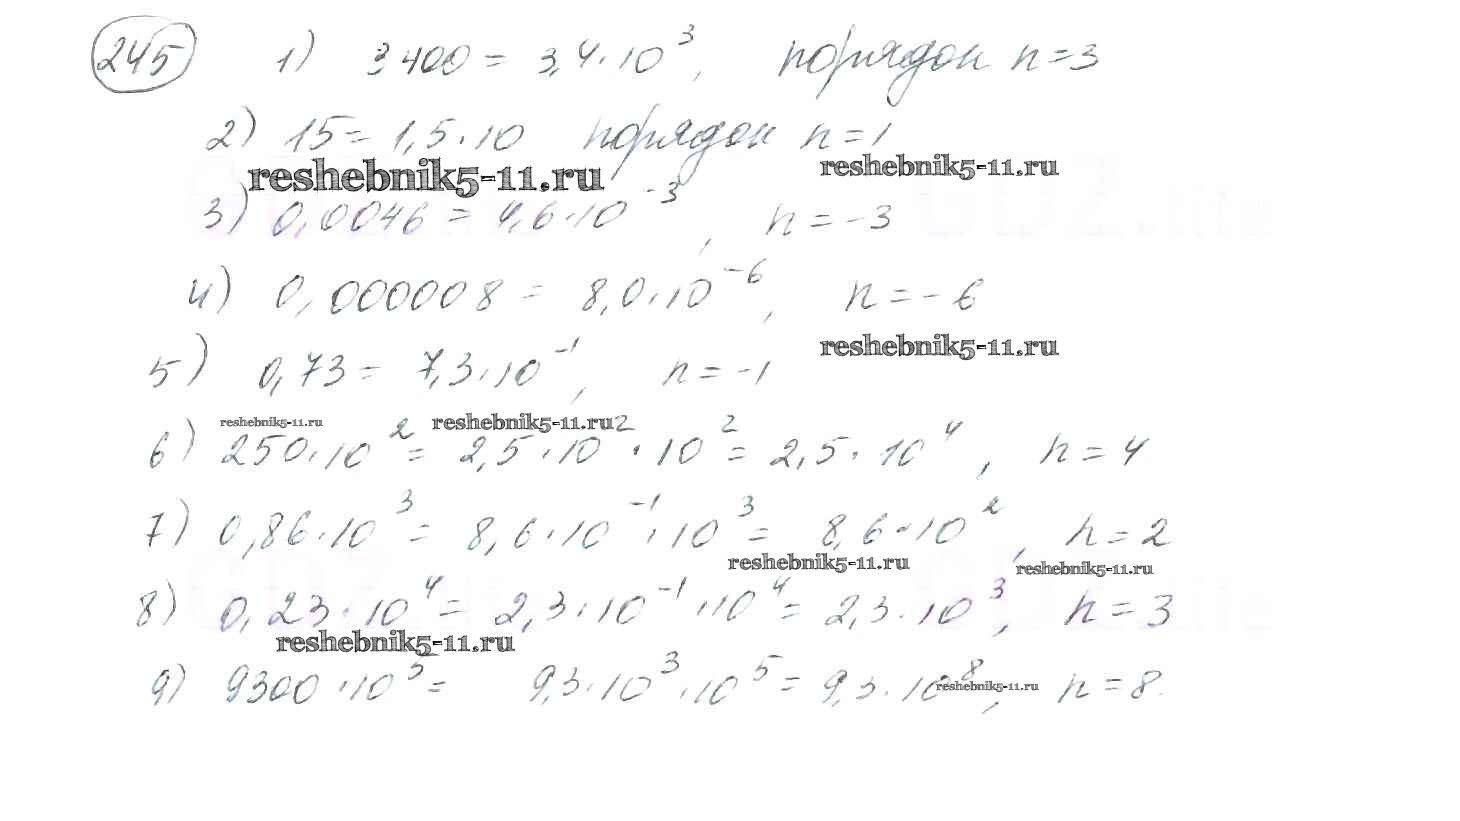 245 1) 3400 = 3,4·10³, порядок n=3
2) 15 = 1,5·10 порядок n=1
reshebnik5-11.ru reshebnik5-11.ru
3) 0,0046 = 4,6·10⁻³, n=-3
4) 0,000008 = 8,0·10⁻⁶, n=-6
reshebnik5-11.ru
5) 0,73 = 7,3·10⁻¹, n=-1
reshebnik5-11.ru reshebnik5-11.ru
6) 250·10² = 2,5·10²·10² = 2,5·10⁴, n=4
7) 0,86·10³ = 8,6·10⁻¹·10³ = 8,6·10², n=2
reshebnik5-11.ru reshebnik5-11.ru
8) 0,23·10⁴ = 2,3·10⁻¹·10⁴ = 2,3·10³, n=3
reshebnik5-11.ru
9) 9300·10⁵ = 9,3·10³·10⁵ = 9,3·10⁸, n=8.
reshebnik5-11.ru